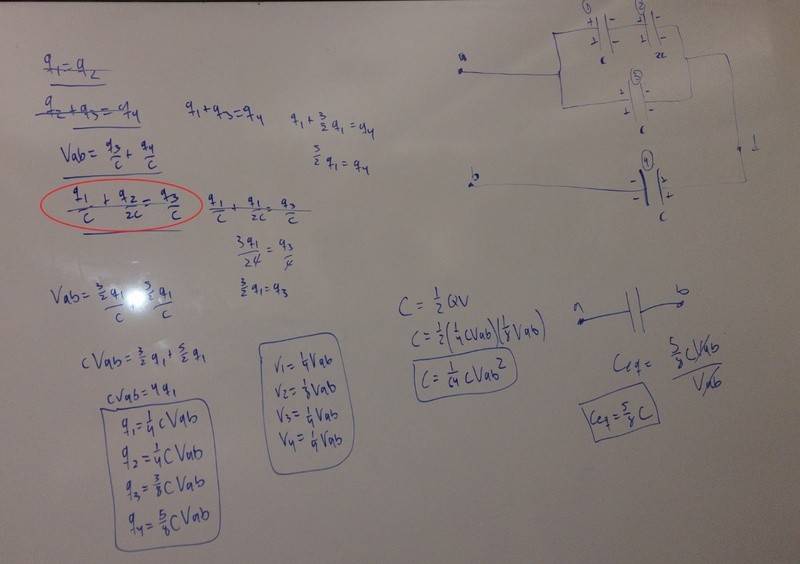 q₁=q₂
q₂+q₃=q₄
q₁+q₃=q₄
q₁+3/2 q₁=q₄
5/2 q₁=q₄
Vab= q₃/C + q₄/C
q₁/C + q₂/2C = q₃/C
q₁/C + q₁/2C = q₃/C
3q₁/2C = q₃/C
3/2 q₁=q₃
Vab= 3/2 q₁/C + 5/2 q₁/C
CVab= 3/2 q₁+ 5/2 q₁
CVab=4q₁
q₁= 1/4 CVab
q₂= 1/4 CVab
q₃= 3/8 CVab
q₄= 5/8 CVab
V₁= 1/4 Vab
V₂= 1/8 Vab
V₄= 1/4 Vab
C= 1/2 QV
C= 1/2 (1/4 CVab)(1/8 Vab)
C= 1/64 CVab²
a
b
+ - + -
C 2C
+ -
C
1
- +
C
a b
Ceq= 5/8 CVab / Vab
Ceq= 5/8 C